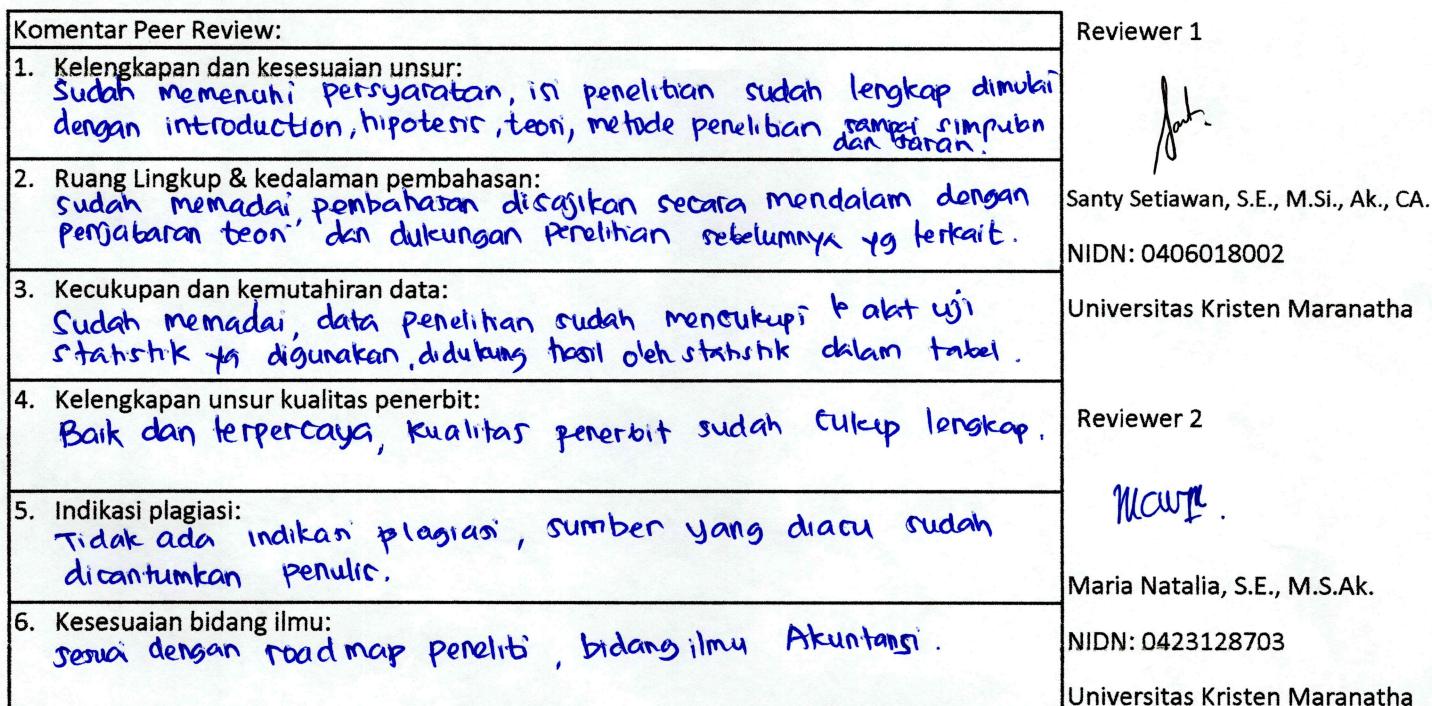 Komentar Peer Review:
1. Kelengkapan dan kesesuaian unsur:
Sudah memenuhi persyaratan, isi penelitian sudah lengkap dimulai
dengan introduction, hipotesis, teori, metode penelitian sampai simpulan
dan saran.
2. Ruang Lingkup & kedalaman pembahasan:
sudah memadai, pembahasan disajikan secara mendalam dengan
penjabaran teori dan dukungan penelitian sebelumnya yg terkait.
3. Kecukupan dan kemutahiran data:
Sudah memadai, data penelitian sudah mencukupi alat uji
statistik yg digunakan, didukung hasil oleh statistik dalam tabel.
4. Kelengkapan unsur kualitas penerbit:
Baik dan terpercaya, kualitas penerbit sudah cukup lengkap.
5. Indikasi plagiasi:
Tidak ada indikasi plagiasi, sumber yang diacu sudah
dicantumkan penulis.
6. Kesesuaian bidang ilmu:
sesuai dengan road map peneliti, bidang ilmu Akuntansi.
Reviewer 1
Santy Setiawan, S.E., M.Si., Ak., CA.
NIDN: 0406018002
Universitas Kristen Maranatha
Reviewer 2
Maria Natalia, S.E., M.S.Ak.
NIDN: 0423128703
Universitas Kristen Maranatha